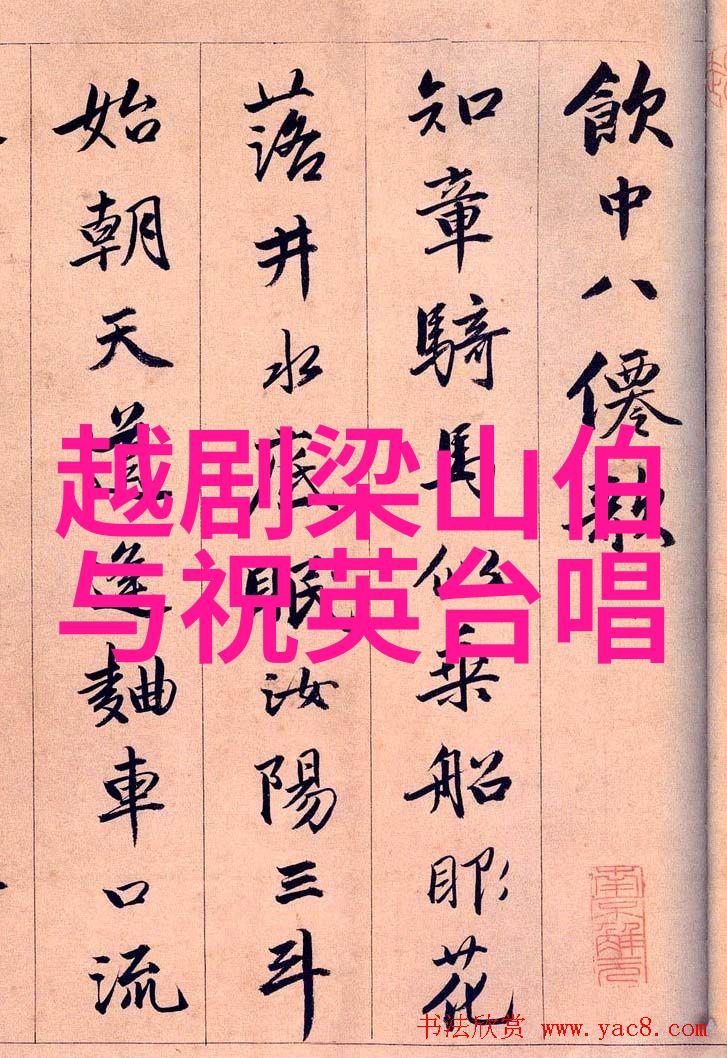 飲中八僊歌
知章騎馬似乘船眼花
落井水底眠汝陽三斗
始朝天道逢麯車口流
越剧梁山伯
与祝英台唱
南京解元
书法欣赏 www.yac8.com